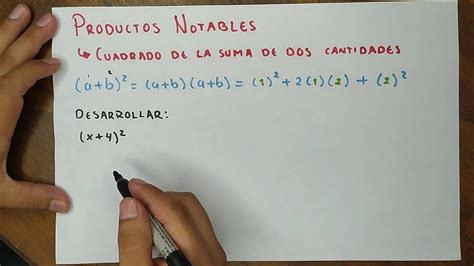 PRODUCTOS NOTABLES
↳ CUADRADO DE LA SUMA DE DOS CANTIDADES
(a+b)² = (a+b)(a+b) = (1)² + 2(1)(2) + (2)²
DESARROLLAR:
(x+4)²